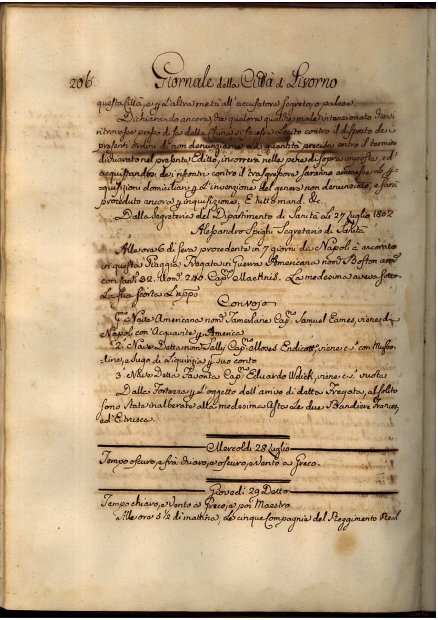 206 Giornale della Città di Livorno
questa Città, e per l'altra metà all'accusatore segreto, o palese.
Dichiarando ancora, che qualora qualche male intenzionato
presenti ordini di non denunziarne la quantità precisa entro il termine
divisato nel presente Editto, incorrerà nelle pene di sopra imposte, ed
acquistandosi riscontri contro il trasgressore saranno ammesse le per-
quisizioni domiciliari per l'invenzione del genere non denunziato, e sarà
proceduto ancora per inquisizione, E tutto mand. &c.
Dalla Segreteria del Dipartimento di Sanità Li 27 luglio 1802
Alessandro Segretario di Sanità
Alle ore 6 di sera procedente in 7 giorni da Napoli è ancorata
in questa Raggia Fregata in Guerra Americana nom. Boston arm.
con can. 32. Uom. 240. Cap. La medesima aveva sotto
La sua scorta L'app.
Convojo
p.mo Nave Americana nom. Tamerlane Cap.no Samuel Eames, viene di
Napoli con Acquavite per America
2.a Nave Detta nom. Sally Cap.no Endicott, viene c.s. con Musso-
line, e sugo di Liquirizia per suo conto
3.a Nave Detta Favorita Cap.no Eduardo viene c.s. vuota
Dalla Fortezza per L'oggetto dell'arrivo di detta Fregata, al solito
sono state inalberate alla medesima Asta Le due Bandiere Franca,
ed Etrusca.
Mercoldì 28 Luglio
Tempo oscuro, e frà chiaro, e oscuro, e Vento a Greco.
Giovedì 29 Detto
Tempo chiaro, e Vento a Greco, e poi Maestro.
Alle ore 5 1/2 di mattina, Le cinque Compagnie del Reggimento Real